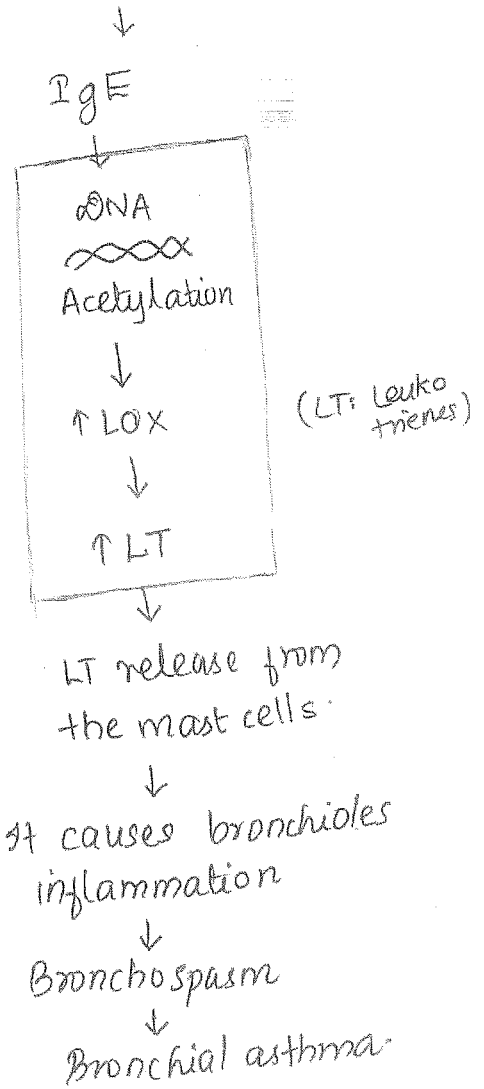 ↓
IgE
↓
DNA
Acetylation
↓
↑ LOX
(LT: Leuko
trienes)
↓
↑ LT
↓
LT release from
the mast cells.
↓
It causes bronchioles
inflammation
↓
Bronchospasm
↓
Bronchial asthma.